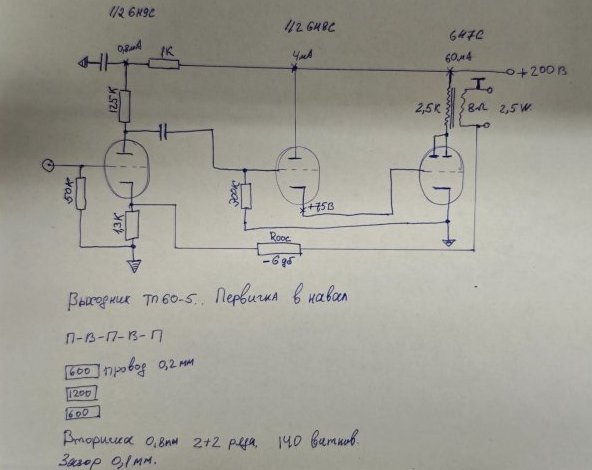 1/2 6Н9С
1/2 6Н8С
6Н7С
0,8мА
1К
4мА
60мА
+200В
125К
2,5К
8Ω
2,5W
50к
1,3К
200к
+75В
Rоос
-6дб
Выходник ТП60-5.. Первичка в навал
П-В-П-В-П
600 провод 0,2мм
1200
600
Вторичка 0,8мм 2+2 ряда 140 витков.
Зазор 0,1мм.